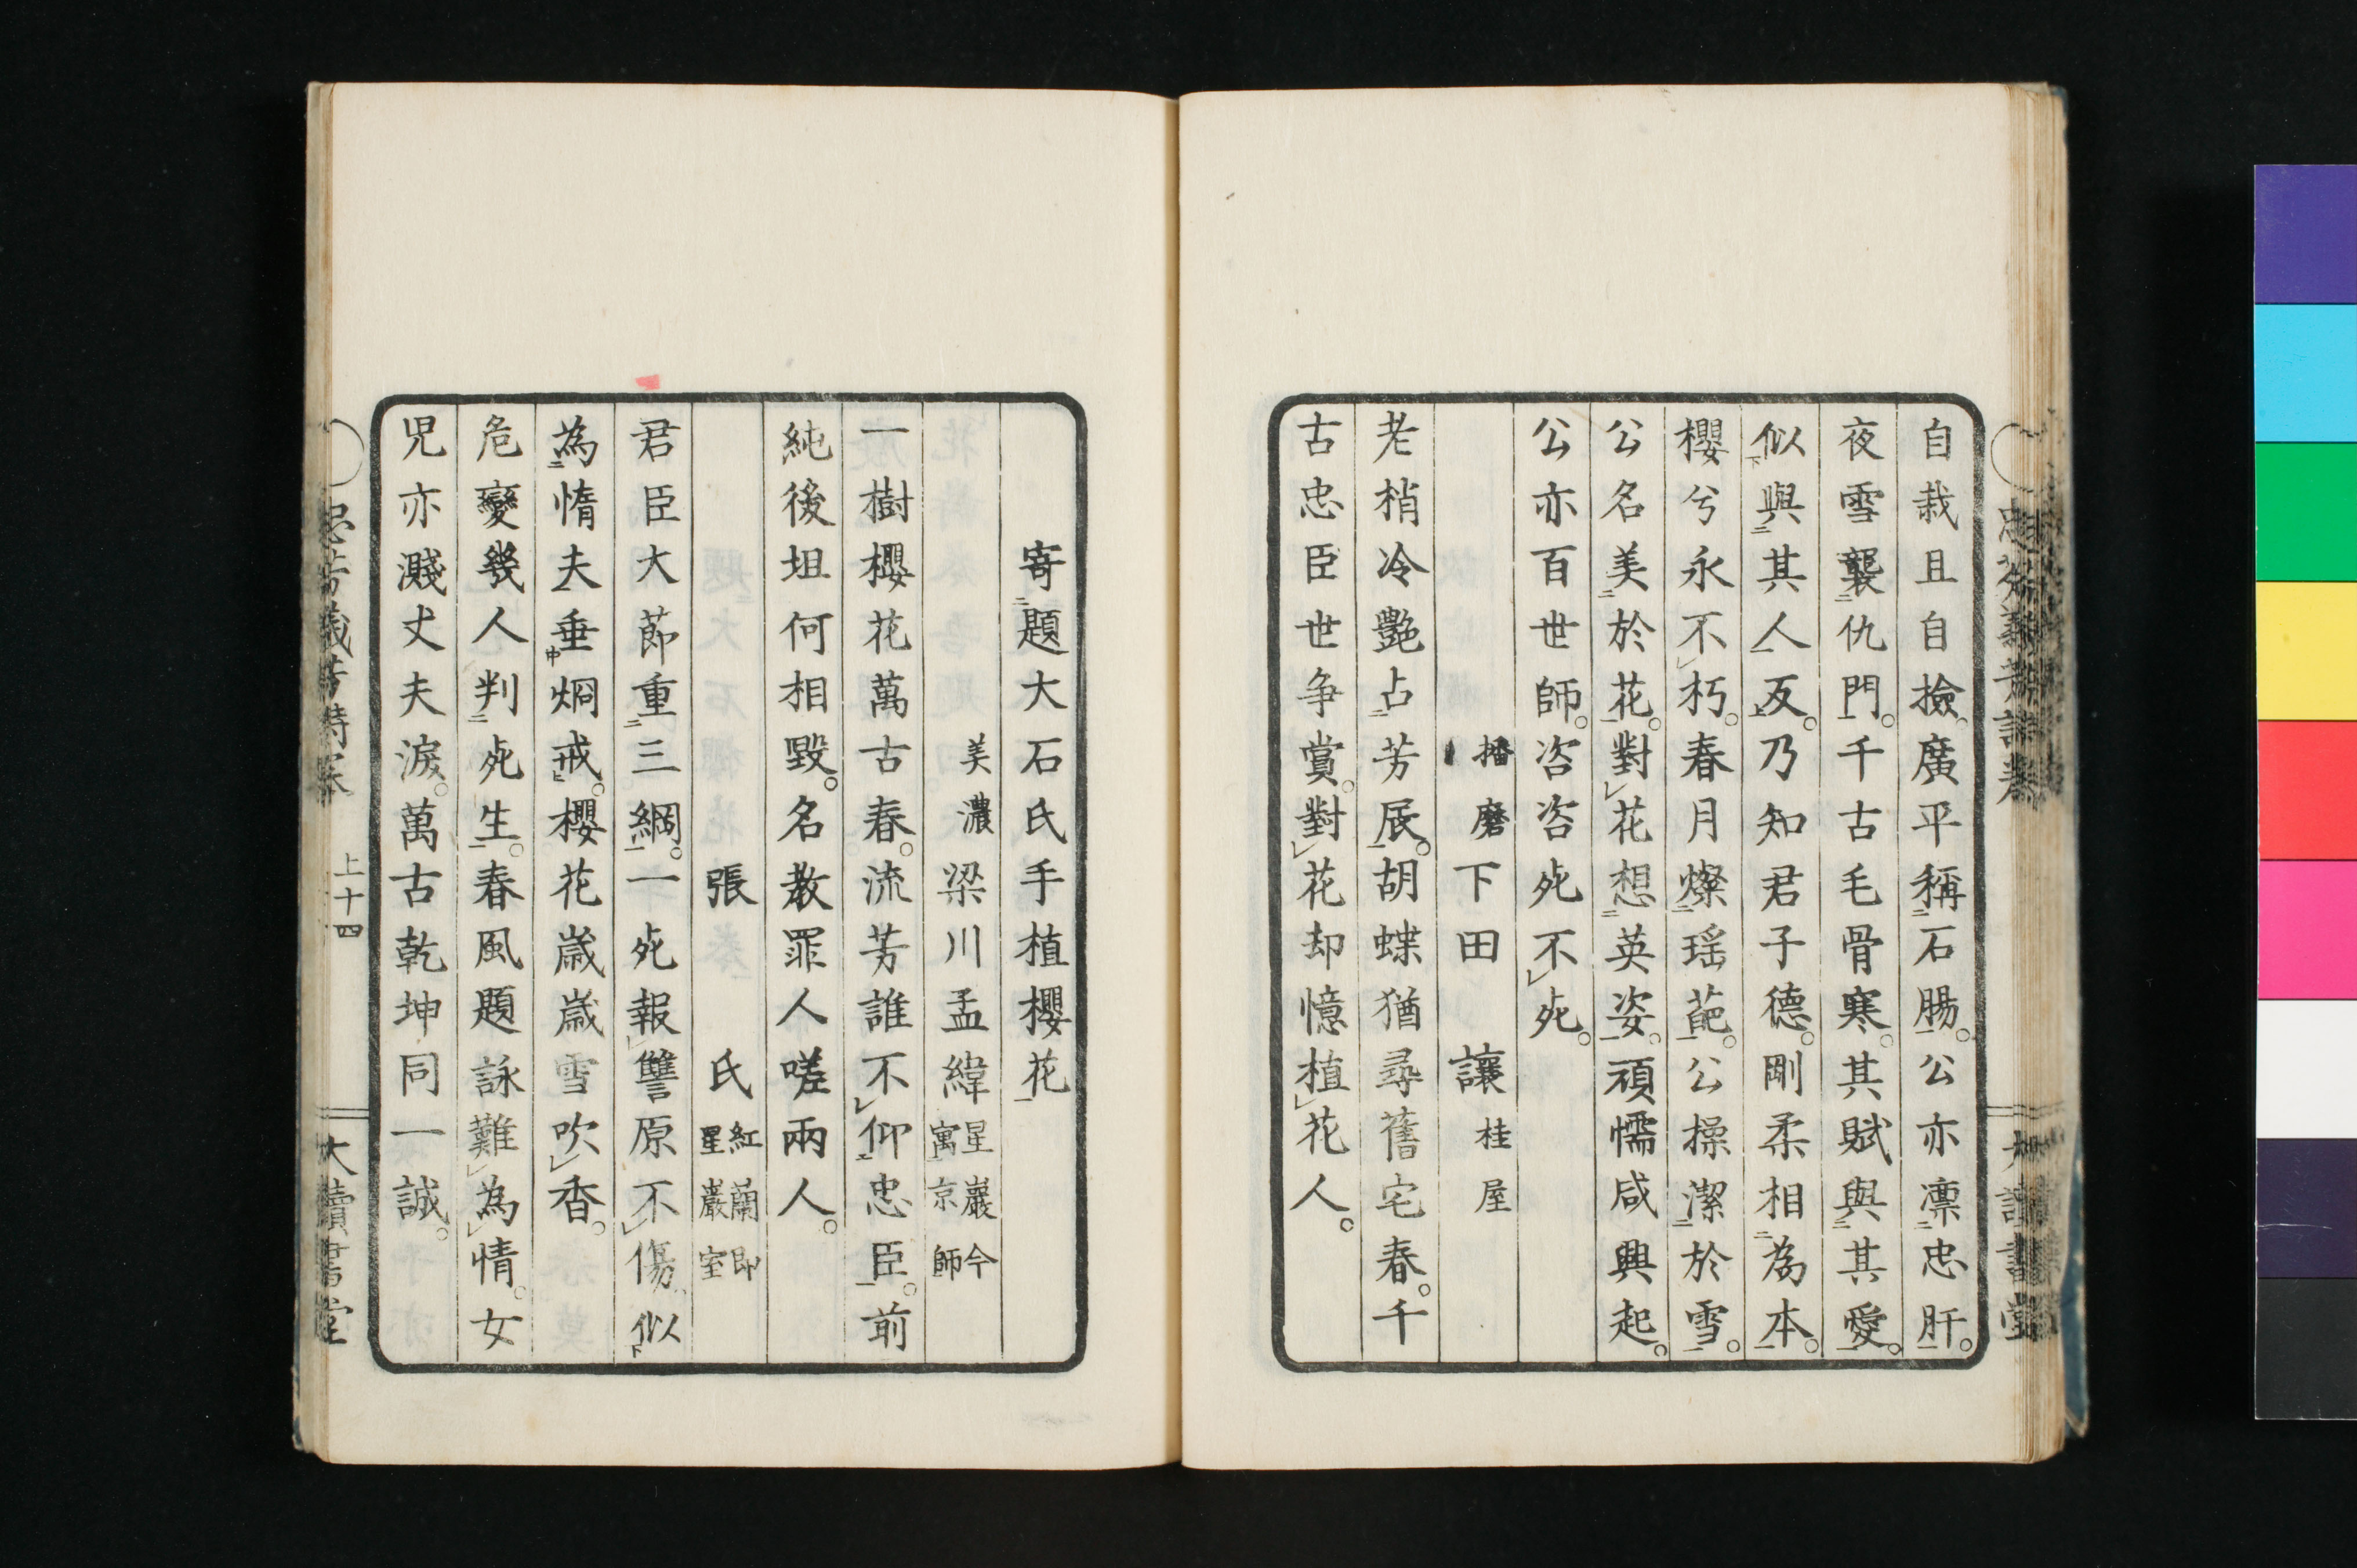 自栽且自撿。廣平稱石腸。公亦凛忠肝。
夜雪襲仇門。千古毛骨寒。其賦與其愛。
似與其人反。乃知君子德。剛柔相為本。
櫻兮永不朽。春月燦瑶葩。公操潔於雪。
公名美於花。對花想英姿。頑懦咸興起。
公亦百世師。咨咨死不死。
播磨下田讓桂屋
老梢冷艷占芳辰。胡蝶猶尋舊宅春。千
古忠臣世争賞。對花却憶植花人。
寄題大石氏手植櫻花
美濃梁川孟緯星巖今寓京師
一樹櫻花萬古春。流芳誰不仰忠臣。前
純後坦何相毀。名教罪人嗟兩人。
張氏紅蘭即星巖室
君臣大節重三綱。一死報讐原不傷似
為惰夫垂炯戒。櫻花歳歳雪吹香。
危變幾人判死生。春風題詠難為情。女
児亦濺丈夫涙。萬古乾坤同一誠。
忠芬義芳詩巻 上十四 大讀書堂